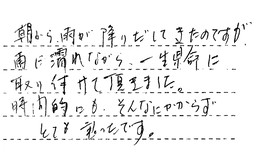 朝から雨が降りだしてきたのですが、
雨に濡れながら、一生懸命に
取り付けて頂きました。
時間的にも、そんなにかからず
とても 良かったです。